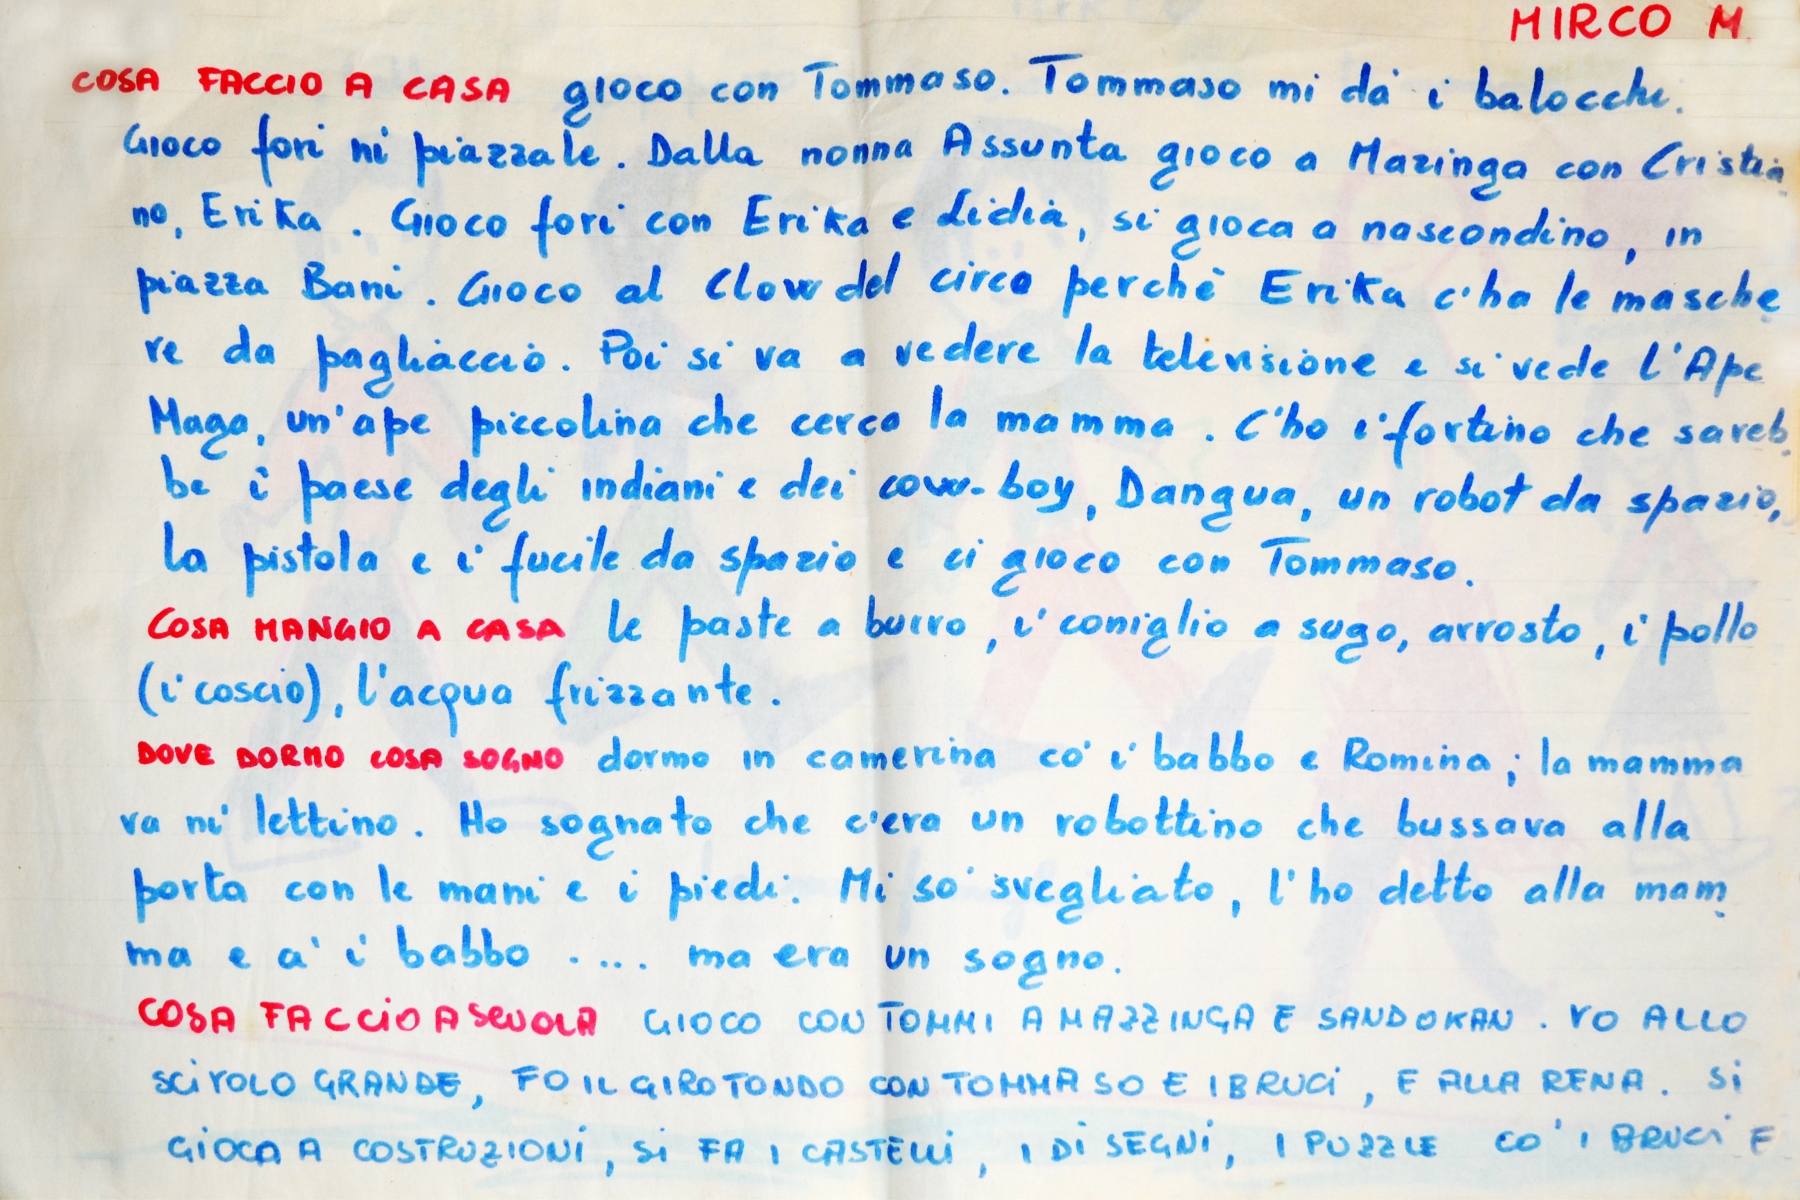 MIRCO M.
COSA FACCIO A CASA gioco con Tommaso. Tommaso mi dà i balocchi.
Gioco fori ni piazzale. Dalla nonna Assunta gioco a Mazinga con Cristia
no, Erika. Gioco fori con Erika e Lidia, si gioca a nascondino, in
piazza Bani. Gioco al Clow del circo perchè Erika c'ha le masche
re da pagliaccio. Poi si va a vedere la televisione e si vede l'Ape
Maga, un'ape piccolina che cerca la mamma. C'ho i' fortino che sareb
be i' paese degli indiani e dei cow-boy, Dangua, un robot da spazio,
la pistola e i' fucile da spazio e ci gioco con Tommaso.
COSA MANGIO A CASA le paste a burro, i' coniglio a sugo, arrosto, i' pollo
(i' coscio), l'acqua frizzante.
DOVE DORMO COSA SOGNO dormo in camerina co' i' babbo e Romina; la mamma
va ni' lettino. Ho sognato che c'era un robottino che bussava alla
porta con le mani e i piedi. Mi so' svegliato, l'ho detto alla mam
ma e a' i' babbo .... ma era un sogno.
COSA FACCIO A SCUOLA GIOCO CON TOMMI A MAZZINGA E SANDOKAN. VO ALLO
SCIVOLO GRANDE, FO IL GIROTONDO CON TOMMASO E I BRUCI, E ALLA RENA. SI
GIOCA A COSTRUZIONI, SI FA I CASTELLI, I DISEGNI, I PUZZLE CO' I BRUCI E